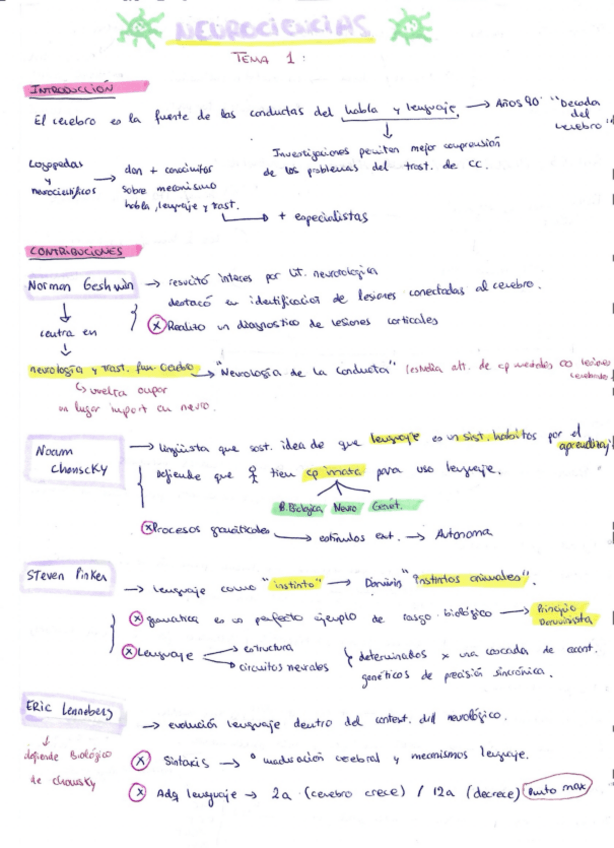 NEUROCIENCIAS
TEMA 1:
INTRODUCCIÓN
El cerebro es la fuente de las conductas del habla y lenguaje. → Años 90 "Decada del cerebro"
Investigaciones permiten mejor comprensión
de los problemas del trast. de CC.
Logopedas
y
neurocientíficos → dan + conocimitos
sobre mecanismo
habla, lenguaje y trast.
→ + especialistas
CONTRIBUCIONES
Norman Geshwin → resucitó interes por
destacó en identificacion de lesiones conectadas al cerebro.
Realizo un diagnostico de lesiones corticales
centra en
neurología y trast. fun cerebro → "Neurología de la Conducta"
vuelva ocupar
un lugar import en neuro.
Noam
Chomscky → lingüista que sost. idea de que lenguaje es un sist. habitos por el aprendizaj
Defiende que tien cp innata para uso lenguaje.
B. Biologica Neuro Genét.
Procesos gramáticales → estimulos ext. → Autonoma
Steven Pinker → lenguaje como "instinto" → Darwin "Instintos animales".
gramatica es un perfecto ejemplo de rasgo biológico → Principio
Darwinista
Lenguaje → estructura
→ circuitos neurales
determinados x una cascada de acont.
genéticos de precisión sincrónica.
Eric Lenneberg → evolución lenguaje dentro del context.
defiende Biológico
de Chomsky
Sintaxis → maduración cerebral y mecanismos lenguaje.
Adq lenguaje → 2a (cerebro crece) / 12a (decrece) Punto max